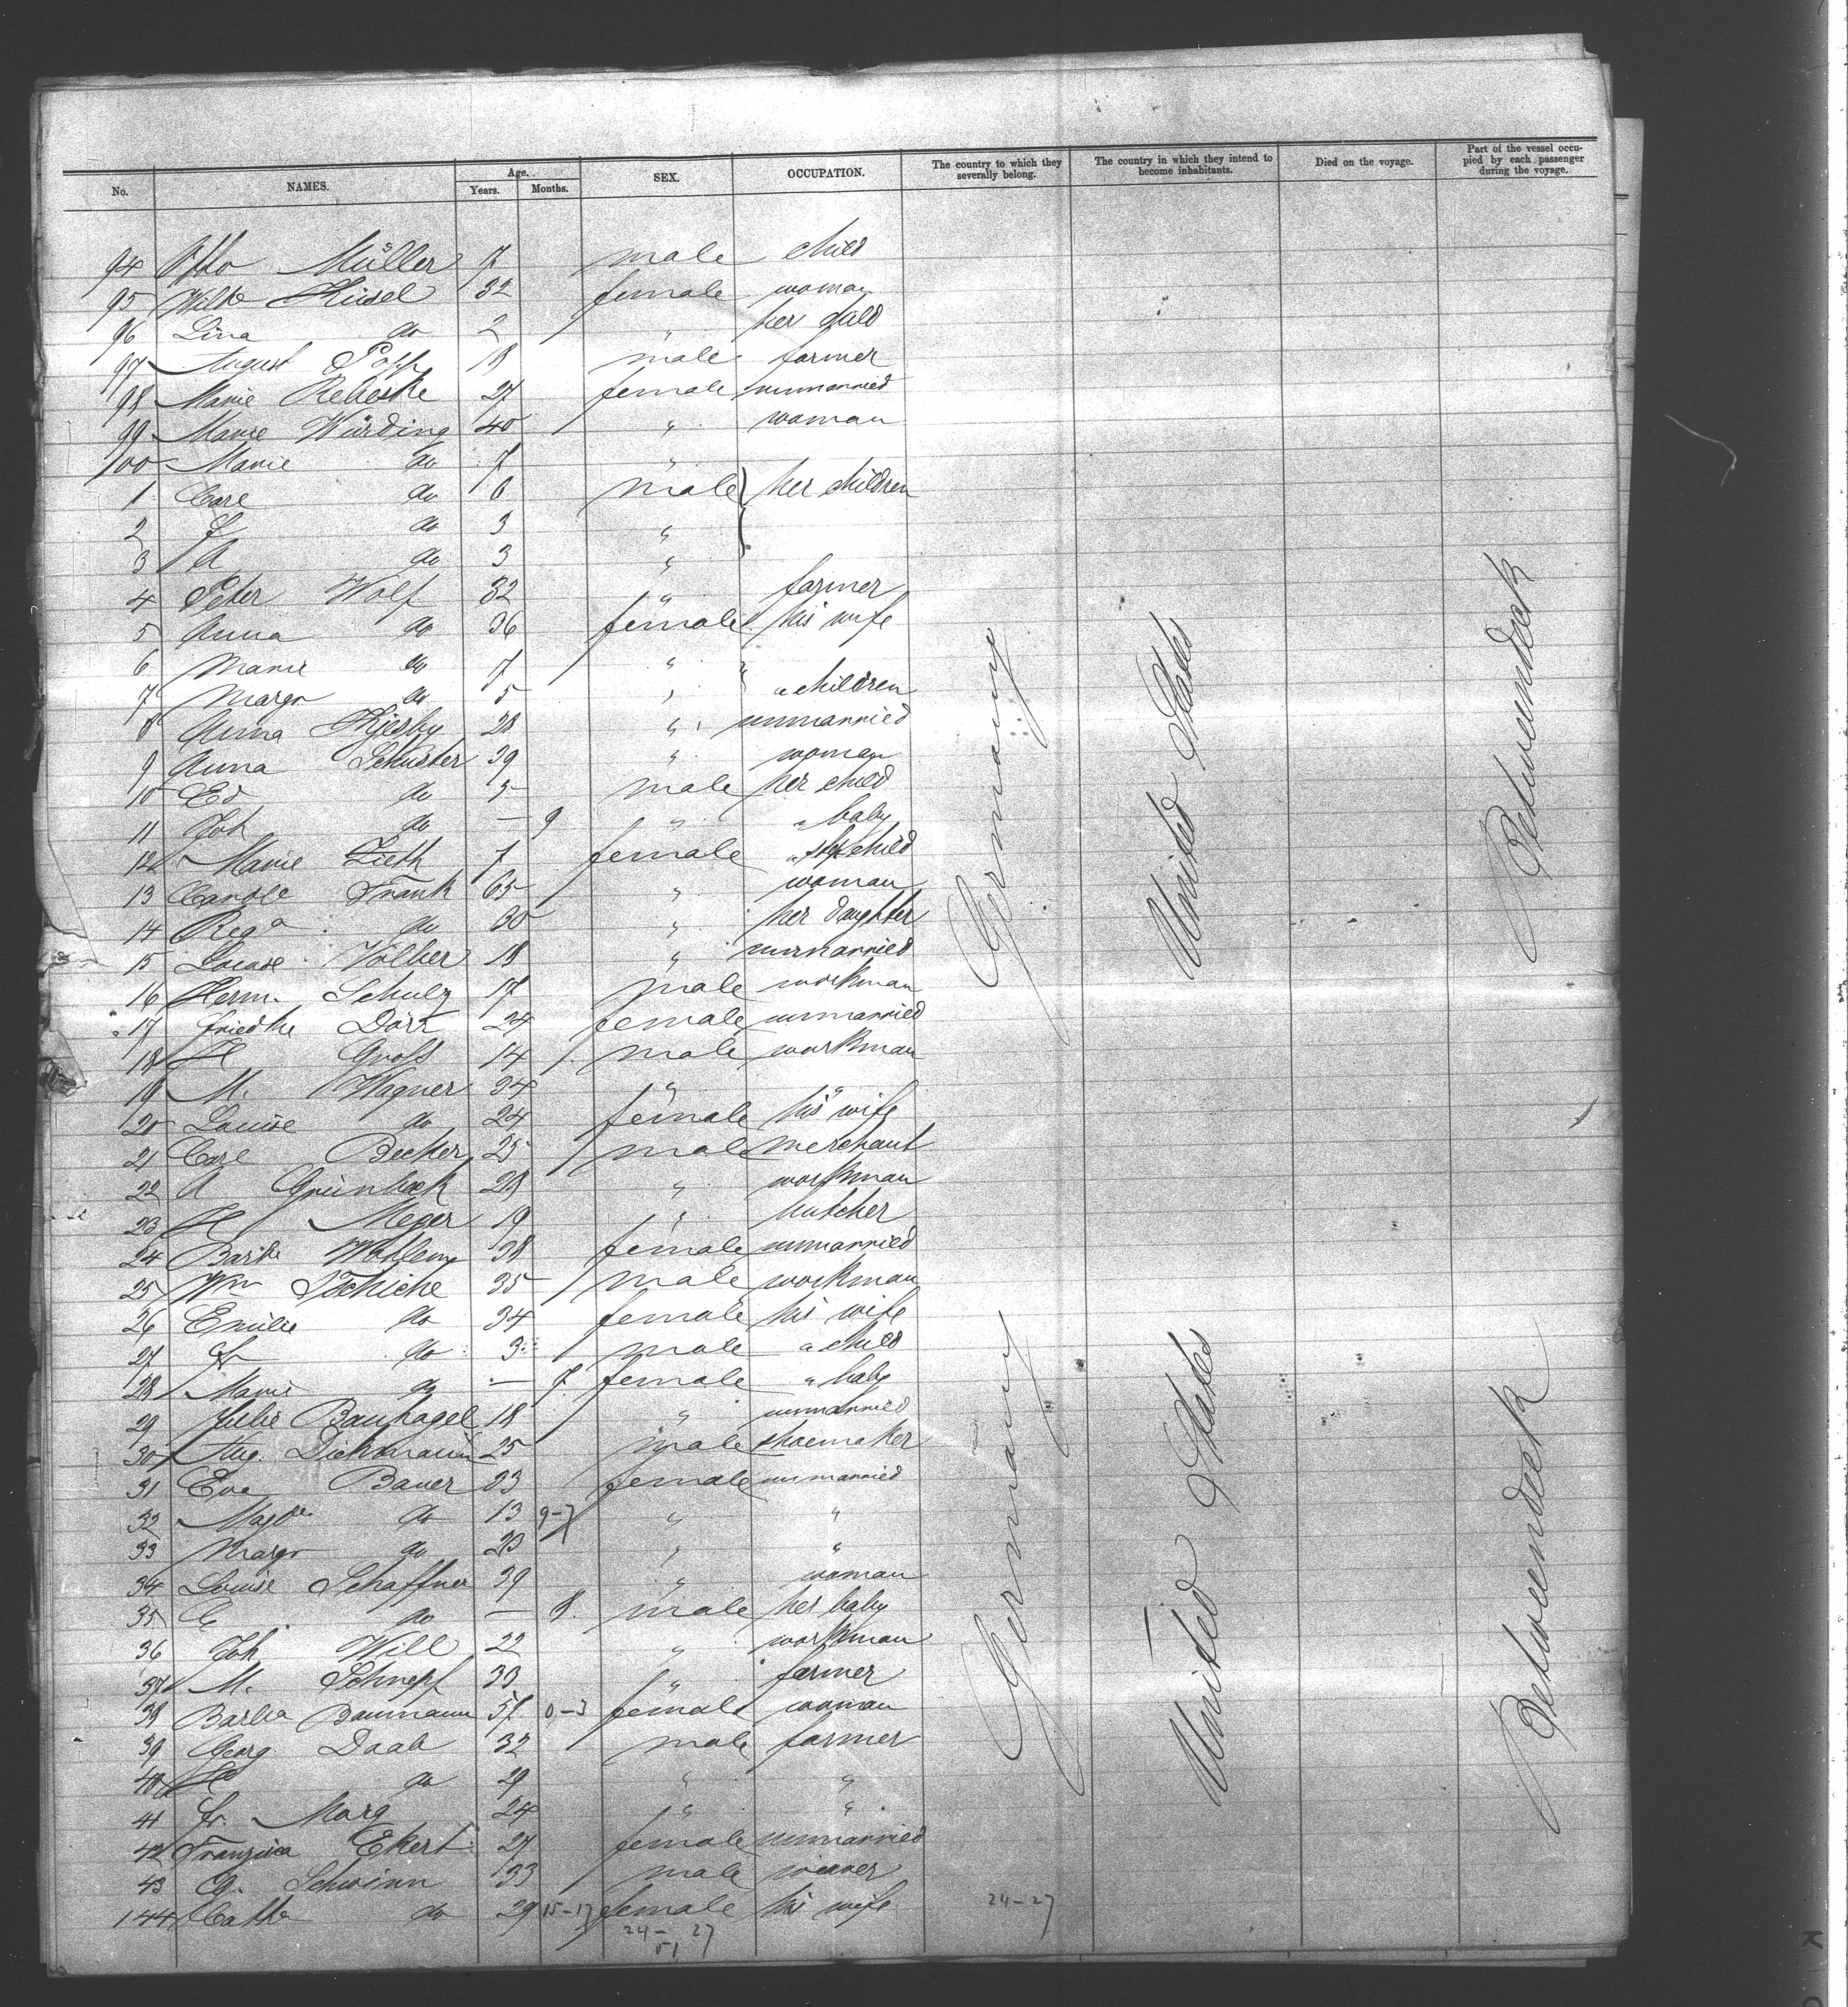 No. NAMES. Age. Years. Months. SEX. OCCUPATION. The country to which they severally belong. The country in which they intend to become inhabitants. Died on the voyage. Part of the vessel occupied by each passenger during the voyage.
94 Otto Müller 7 male child
95 Wilhe Küsel 32 female woman
96 Lina do 2 " her child
97 August Popp 18 male farmer
98 Marie Rebeske 27 female unmarried
99 Marie Würding 40 " woman
100 Marie do 7 "
1 Carl do 6 male her children
2 do 3 "
3 A do 3 "
4 Peter Wolf 32 " farmer
5 Anna do 36 female his wife
6 Marie do 7 " "
7 Margr do 5 " " children
8 Anna Kjesby 28 " unmarried
9 Anna Schuster 39 " woman
10 Ed do 5 male her child
11 Joh do — 9 " " baby
12 Marie Lieth 7 female " stepchild
13 Carole Frank 65 " woman
14 Rega do 30 " her daughter
15 Louise Volker 18 " unmarried
16 Herm. Schulz 17 male workman
17 Friedke Dörr 24 female unmarried
18 H Groß 14 male workman
19 M. Wagner 34 " "
20 Louise do 24 female his wife
21 Carl Becker 25 male merchant
22 A Grünbeck 28 " workman
23 H Meyer 19 " butcher
24 Barbe 38 female unmarried
25 Wm Tschiche 35 male workman
26 Emilie do 34 female his wife
27 Fr do 3 male " child
28 Marie do — 7 female " baby
29 Julie Bauhagel 18 " unmarried
30 Aug. Dickmann 25 male shoemaker
31 Eva Bauer 23 female unmarried
32 Magde do 13 9-7 " "
33 Margr do 23 " "
34 Louise Schaffner 39 " woman
35 do — 8 male her baby
36 Joh Will 22 " workman
37 M. Schnepf 33 " farmer
38 Barba Baumann 57 0-3 female woman
39 Georg Daab 32 male farmer
40 H do 29 " "
41 Fr. Marg 24 " "
42 Franzisca Ekert 27 female unmarried
43 G. Schwinn 33 male weaver
144 Cathe do 29 15-17 female his wife 24-27
24-27
51
Germany United States Betweendeck
Germany United States Betweendeck